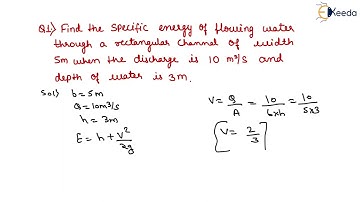 Ekeeda
Q1) Find the specific energy of flowing water
through a rectangular channel of width
5m when the discharge is 10 m³/s and
depth of water is 3m.
Sol) b = 5m
Q = 10m3/s
h = 3m
E = h + V²/2g
V = Q/A = 10/bxh = 10/5x3
[V = 2/3]